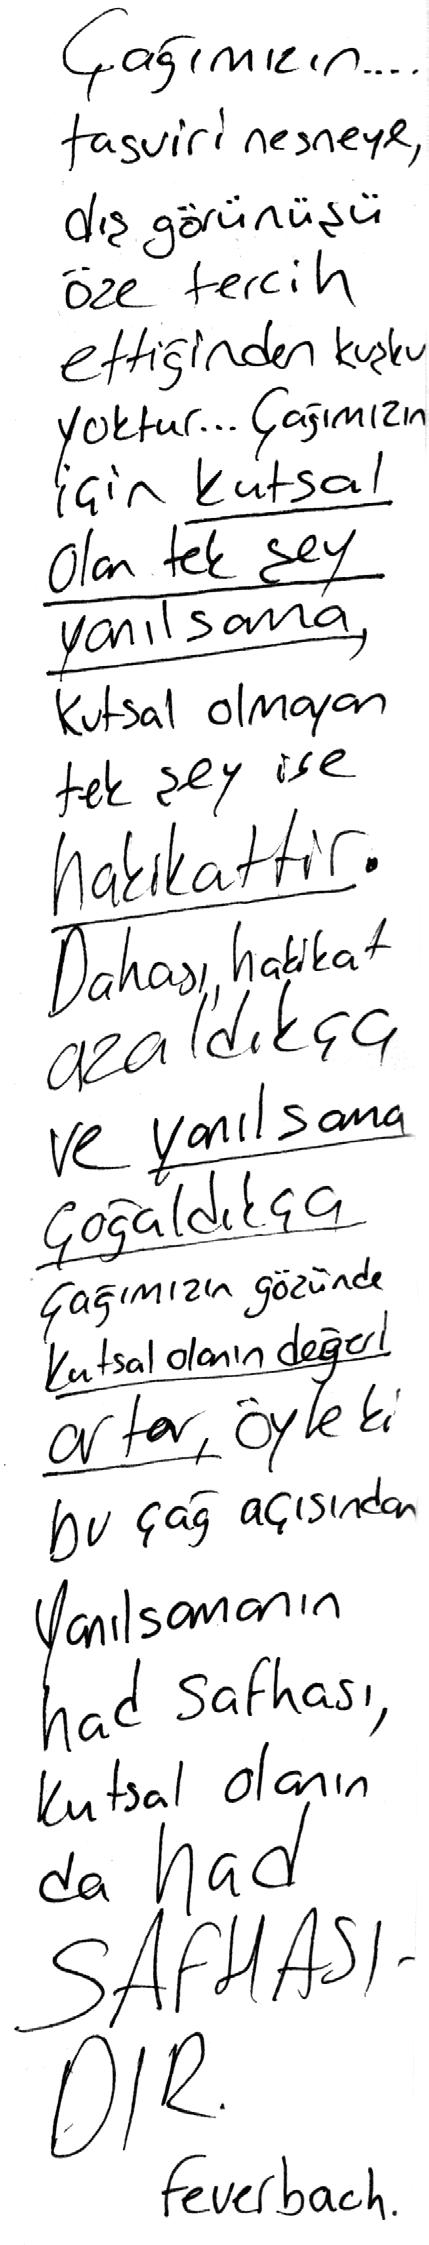 Çağımızın....
tasviri nesneye,
dış görünüşü
öze tercih
ettiğinden kuşku
yoktur... Çağımızın
için kutsal
olan tek şey
yanılsama,
kutsal olmayan
tek şey ise
hakikattir.
Dahası, hakikat
azaldıkça
ve yanılsama
çoğaldıkça
çağımızın gözünde
kutsal olanın değeri
artar, öyle ki
bu çağ açısından
yanılsamanın
had safhası,
kutsal olanın
da had
SAFHASI-
DIR.
feuerbach.